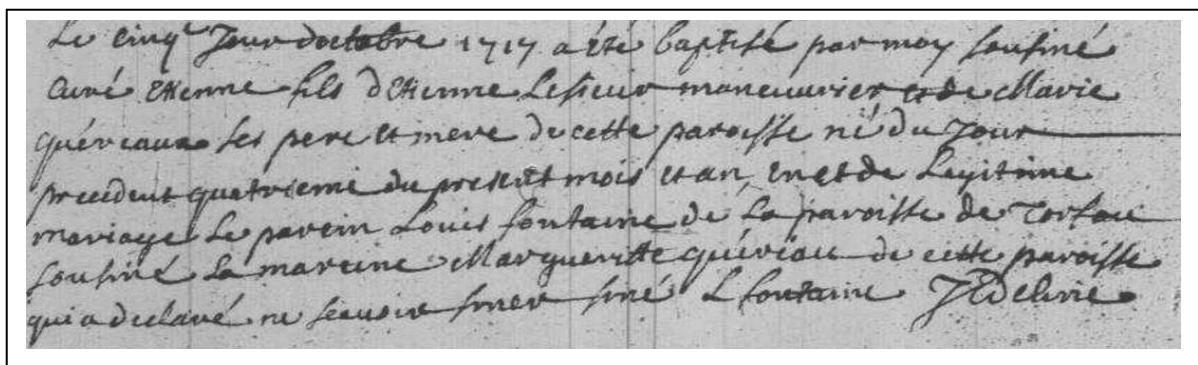 Le cinqe Jour doctobre 1717 a été baptisé par moy sousiné
curé Etienne fils d'Etienne Lesieur maneuvrier et de Marie
quéreaux ses pere et mere de cette paroisse né du Jour
precedent quatrieme du present mois et an, en et de Legitime
mariage Le parein Louis fontaine de La paroisse de
sousiné La mareine Margueritte quériau de cette paroisse
qui a declaré ne scavoir siner siné L fontaine